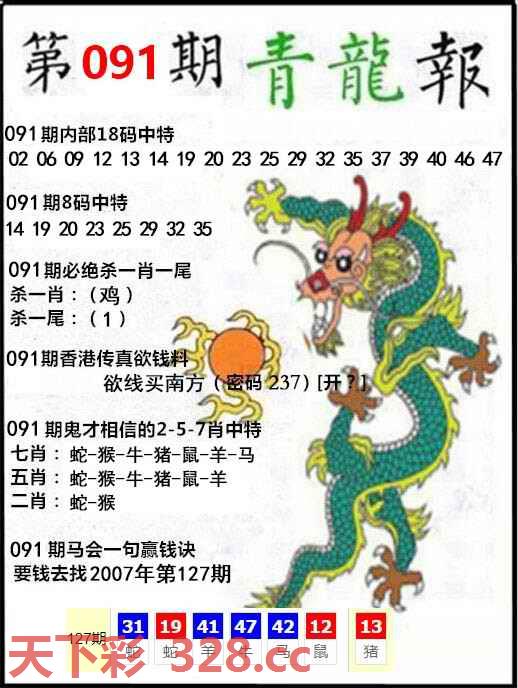 第091期青龍報
091期内部18码中特
02 06 09 12 13 14 19 20 23 25 29 32 35 37 39 40 46 47
091期8码中特
14 19 20 23 25 29 32 35
091期必绝杀一肖一尾
杀一肖：（鸡）
杀一尾：（1）
091期香港传真欲钱料
欲线买南方（密码 237）[开？]
091期鬼才相信的2-5-7肖中特
七肖：蛇-猴-牛-猪-鼠-羊-马
五肖：蛇-猴-牛-猪-鼠-羊
二肖：蛇-猴
091期马会一句赢钱诀
要钱去找2007年第127期
127期 31 19 41 47 42 12 13
蛇 蛇 羊 牛 马 鼠 猪
天下彩 328.cc